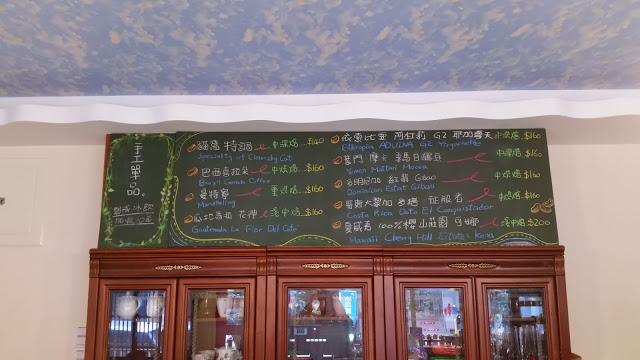 手工單品。
製成冰飲
加收10元
貓窩 特調 中深焙...$140
Specialty of Clumsky Cat
巴西喜拉朵 中焙...$160
Brazil Cerrado Coffee
曼特寧 重焙...$160
Mandheling
瓜地馬拉 花神 淺中焙...$160
Guatemala La Flor Del Café
依索比亞 阿杜莉 G2 耶加雪夫 中焙...$160
Ethiopia ADUINA G2 Yirgacheffe
葉門 摩卡 瑪日陽田 中深焙...$160
Yemen Mattari Mocha
多明尼加 紅翡 G800 中焙...$160
Dominican Estat Gibou
哥斯大黎加 多塔 征服者 中焙...$160
Costa Rica Dota El Conquistador
夏威夷 100% 櫻山莊園 可娜 淺中焙...$200
Hawaii Cherry Hill Estates Kona